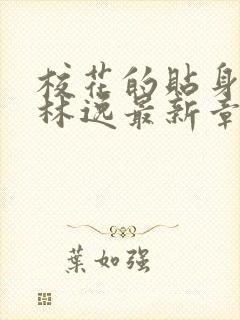 校花的貼身
林逸最新章
葉如强